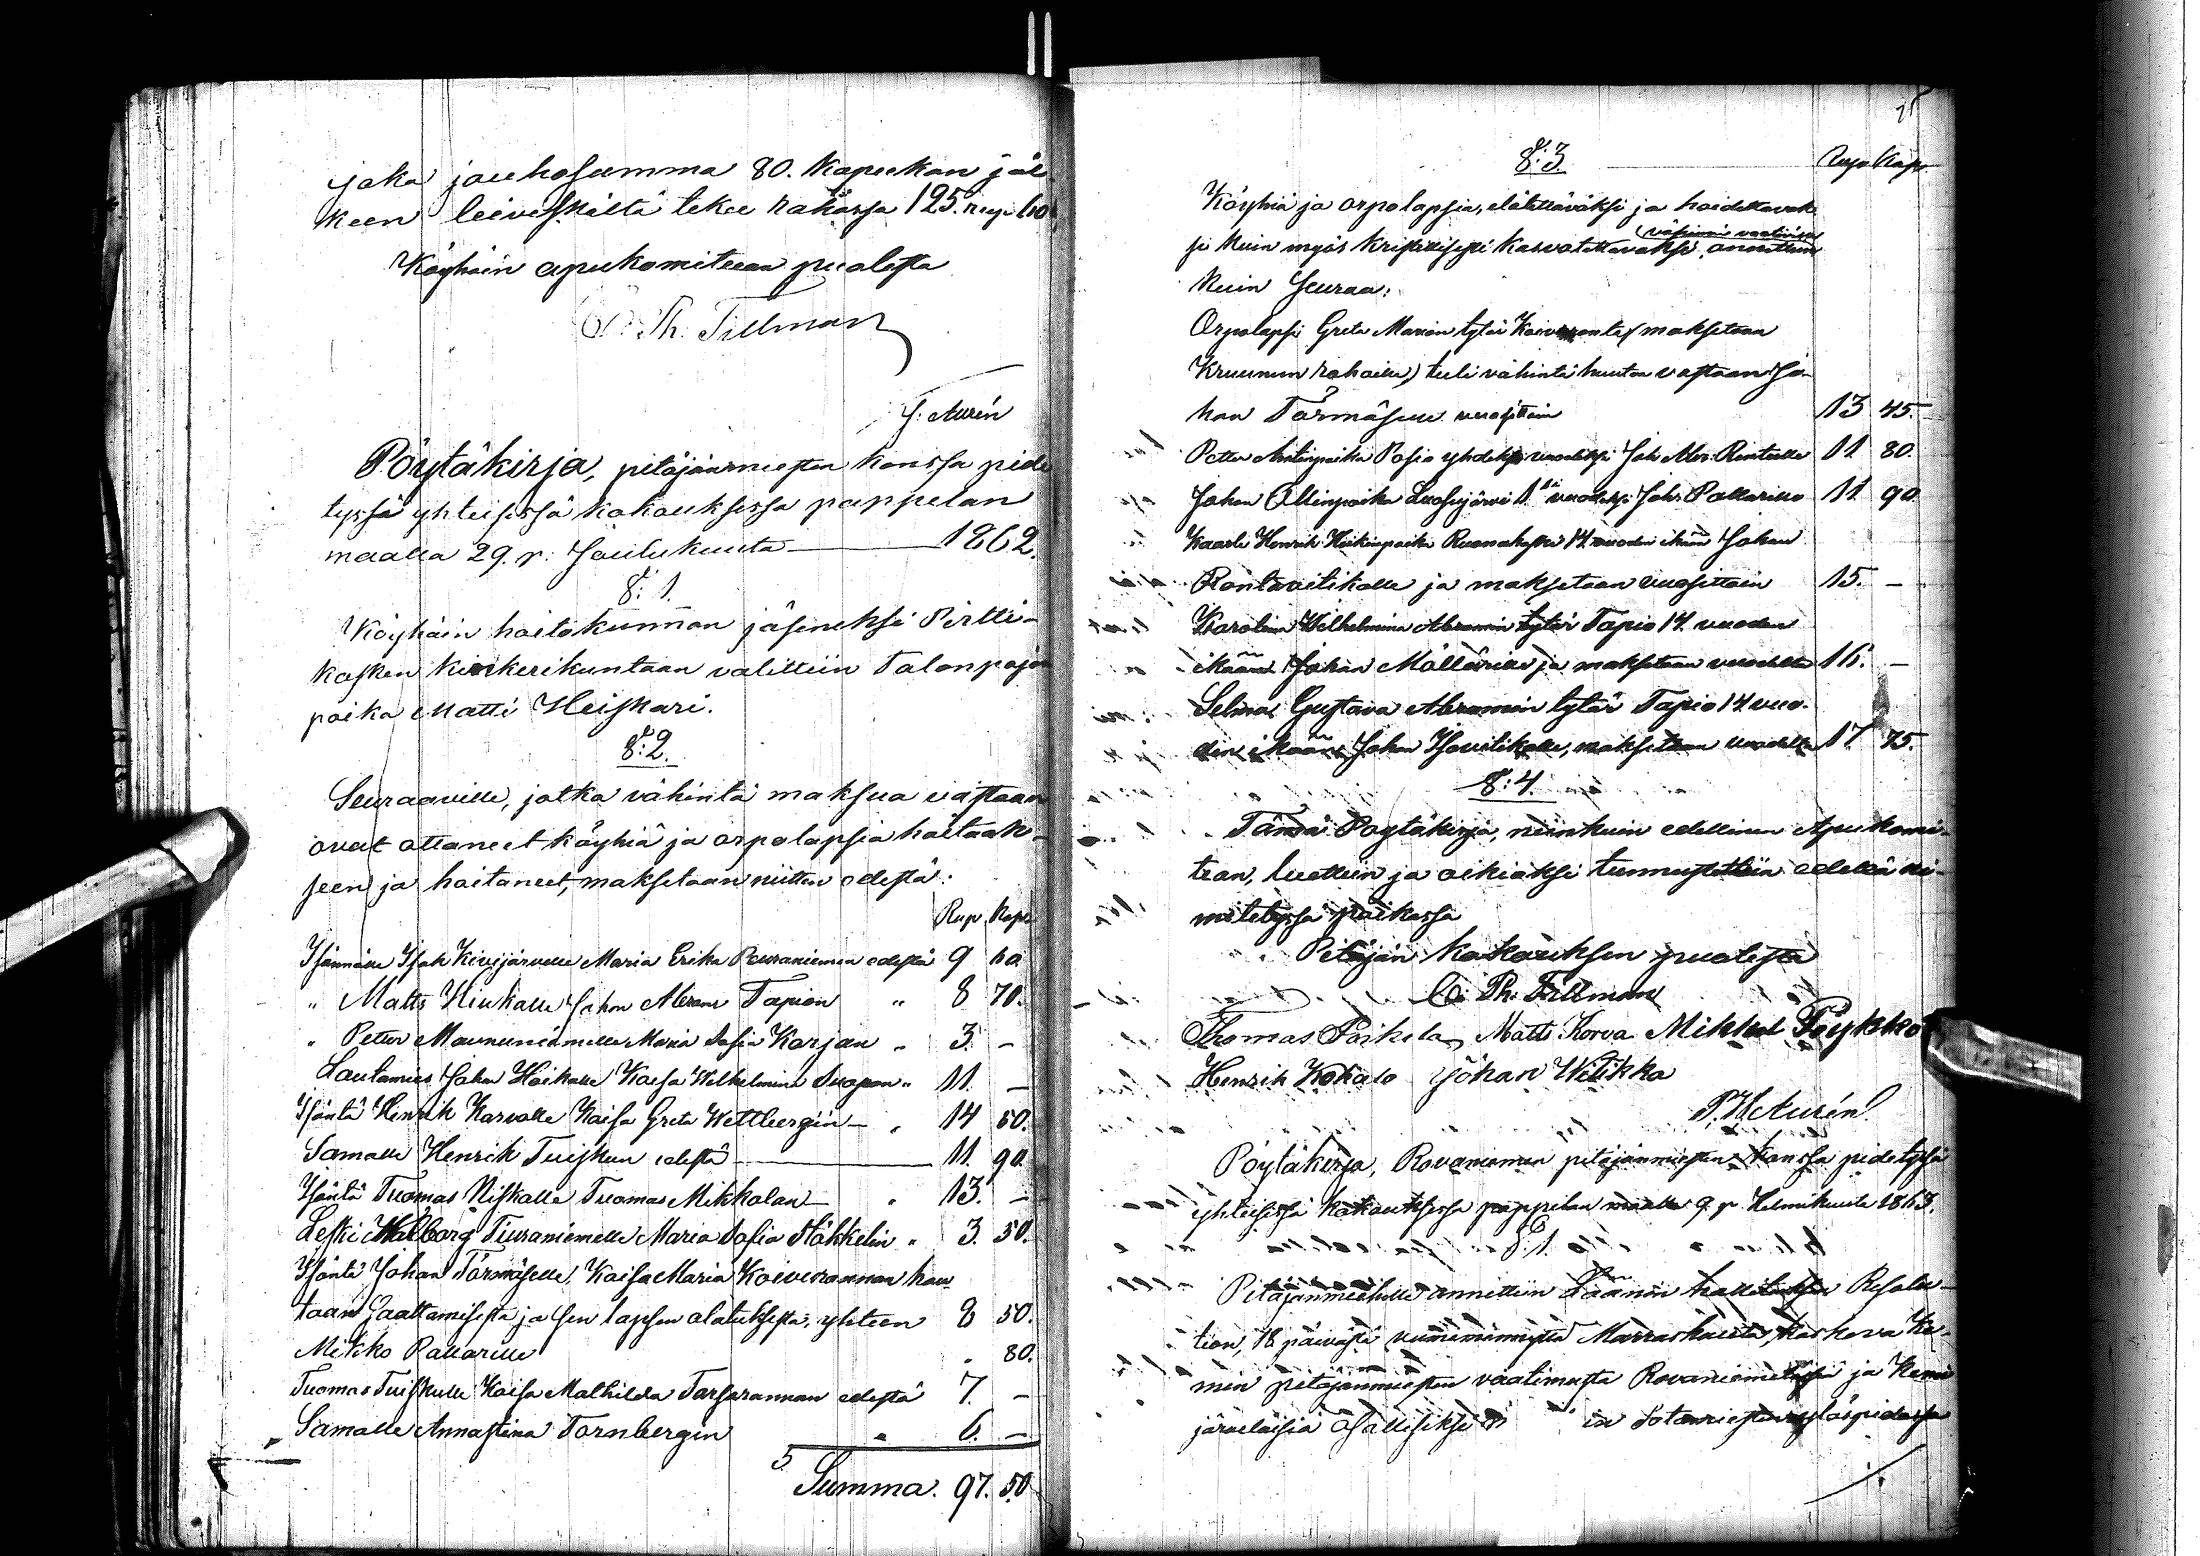 joka jauhosumma 80. kapeekan jäl-
keen leiveskältä tekee rahassa 125. rup. 60
Köyhäin apukomiteean puolesta
C. Th. Tillman
J. Aurén
Pöytäkirja, pitäjänmiesten kanssa pide-
tyssä yhteisessä kokouksessa pappilan
maalla 29. p. Joulukuuta 1862.
§: 1.
Köyhäin hoitokunnan jäseneksi Pirtti-
kosken kinkerikuntaan valittiin Talonpojan
poika Matti Heiskari.
§: 2.
Seuraaville, jotka vähintä maksua vastaan
ovat ottaneet köyhiä ja orpolapsia hoitaak-
seen ja hoitaneet, maksetaan niitten edestä:
Rup. Kap.
Isännälle Isak Kivijärvelle Maria Erika Peuraniemen edestä 9 60
" Matts Hiukalle Johan Abram Tapion " 8 70.
" Petter Maununiemelle Maria Sofia Karjan " 3. -
Lautamies Johan Hoikalle Kaisa Wilhelmina Suopan " 11. -
Isäntä Henrik Karvalle Kaisa Greta Wettbergin - " 14 50.
Samalle Henrik Tuiskun edestä 11. 90.
Isäntä Tuomas Niskalle Tuomas Mikkolan - " 13. -
Leski Walborg Tiuraniemelle Maria Sofia Häkkelin " 3. 50.
Isäntä Johan Törmäselle, Kaisa Maria Koivurannan hau-
taan saattamisesta ja sen lapsen elatuksesta, yhteen 8 50.
Mikko Pallarille " 80.
Tuomas Tuiskulle Kaisa Mathilda Tarsarannan edestä 7. -
Samalle Annastina Tornbergin " 6. -
Summa. 97. 50
§: 3. Rup. Kap.
Köyhiä ja orpolapsia, elätettäväksi ja hoidettavak-
si kuin myös kristillisesti kasvatettavaksi, annettiin
kuin seuraa:
Orpolapsi Greta Marian tytär Koivuranta (maksetaan
Kruunun rahoilla) tuli vähintä huutoa vastaan Jo-
han Törmäselle vuosittain 13 45.
Petter Antinpoika Posio yhdeksi vuodeksi Joh. Abr. Rantalle 11 80.
Johan Ollinpoika Luosujärvi 1 vuodeksi Joh. Pallarille 11 90
Kaarle Henrik Heikinpoika Ruonakoski 14 vuoden ikään Johan
Rantavitikalle ja maksetaan vuosittain 15. -
Karolina Wilhelmina Abramin tytär Tapio 14 vuoden
ikään Johan Möllärille ja maksetaan vuodelta 16. -
Selma Gustava Abramin tytär Tapio 14 vuo-
den ikään Johan Isovitikalle, maksetaan vuodelta 17 75.
§: 4.
Tämä Pöytäkirja, niinkuin edellinen Apukomi-
tean, luettiin ja oikiaksi tunnustettiin edellä ni-
mitetyssä paikassa
Pitäjän kokouksen puolesta
C. Th. Tillman
Thomas Poikela Matts Korva Mikkel Pöykkö
Henrik Kokalo Johan Witikka
P. H. Aurén
Pöytäkirja, Rovaniemen pitäjänmiesten kanssa pidetyssä
yhteisessä kokouksessa pappilan maalla 9. p. Helmikuuta 1863.
§: 1.
Pitäjänmiehille annettiin Läänin hallituksen Resolu-
tion, 18 päivästä viimeminnyttä Marraskuuta, koskeva Ke-
min pitäjänmiesten vaatimusta Rovaniemeläisiä ja Kemi-
järveläisiä osallisiksi in Sotamiesten ylöspidossa